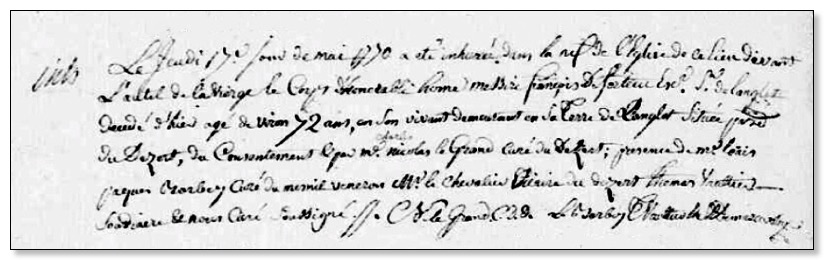 Le Jeudi 17e jour de mai 1770 a eté inhumé dans la nef de l'Eglise de ce lieu devant
L'autel de la vierge le Corps d'honorable home messire françois Desfarteux Sr de Langlot
decedé d'hier agé de viron 72 ans, en son vivant demeurant en sa Terre de Langlot située
du Dezert, du Consentement par mr nicolas le Grand curé du Dezert; presence de mr louis
jaques Barbey Curé du mesnil veneron Mr le chevalier du dezert thomas Vauttier
de nous Curé soussigné C N le Grand C d d L J Barbey